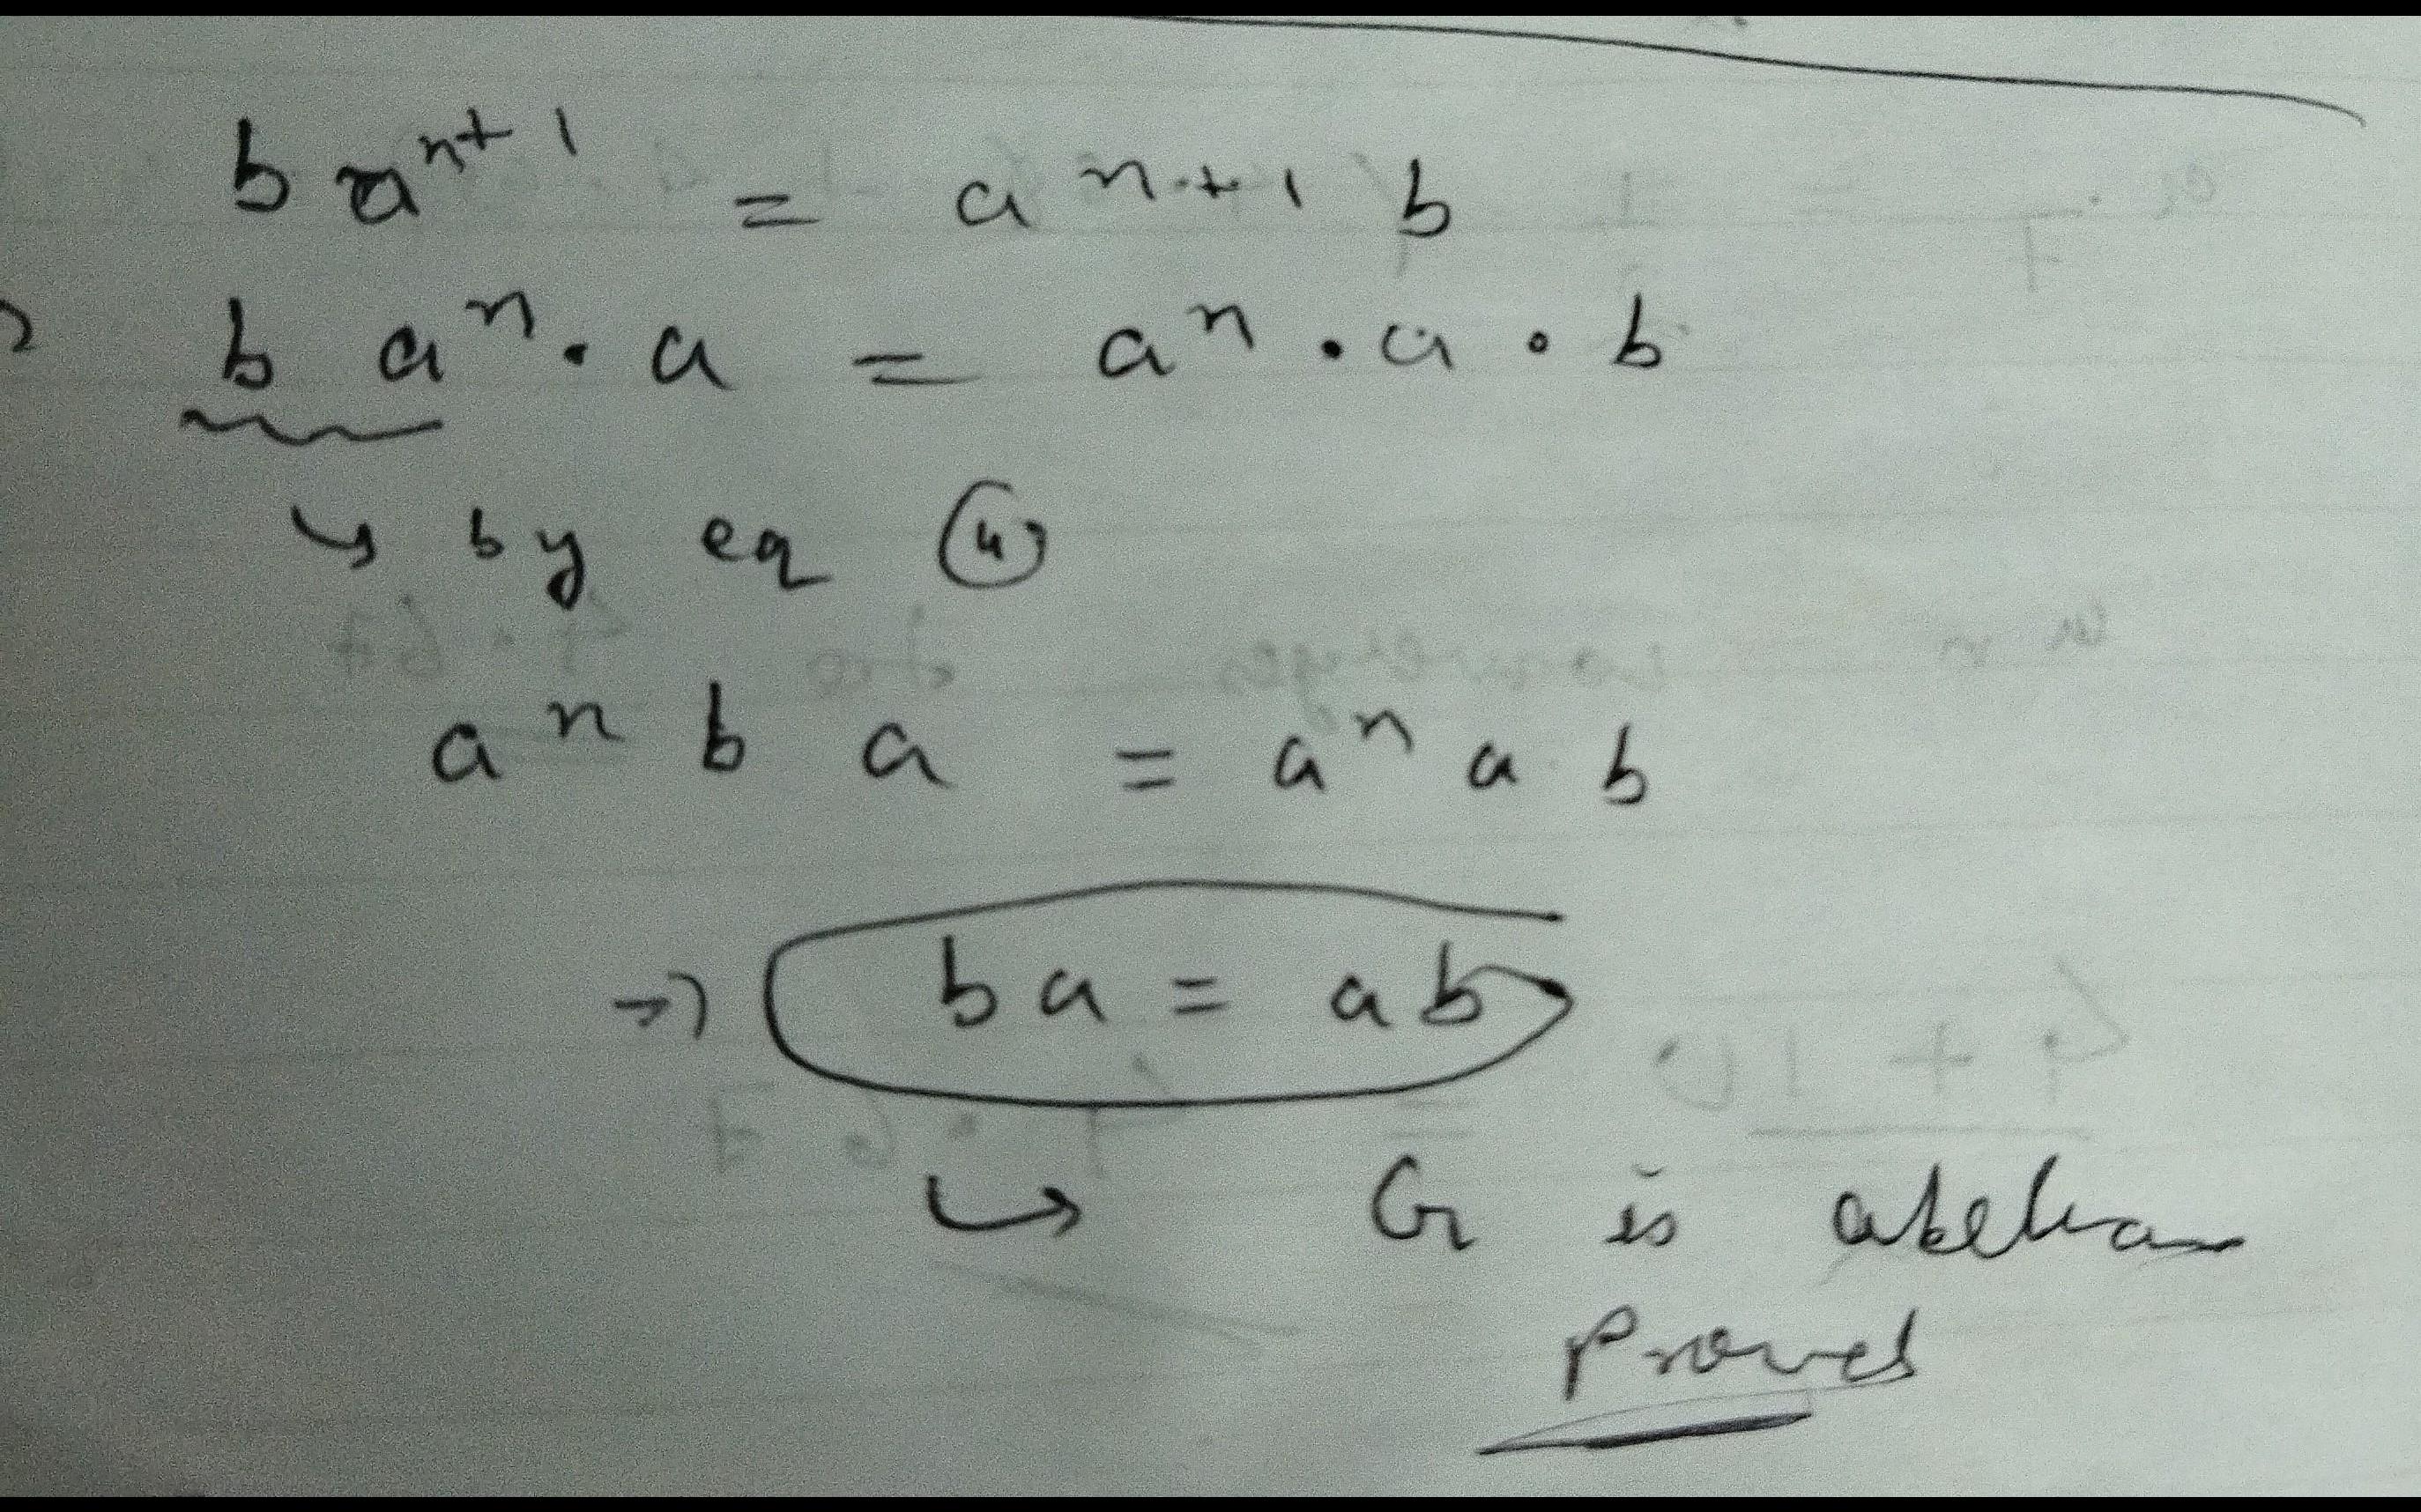 b aⁿ⁺¹ = aⁿ⁺¹ b
b aⁿ · a = aⁿ · a · b
↳ by eq ④
aⁿ b a = aⁿ a b
→) b a = a b
↳ G is abelian
Proved